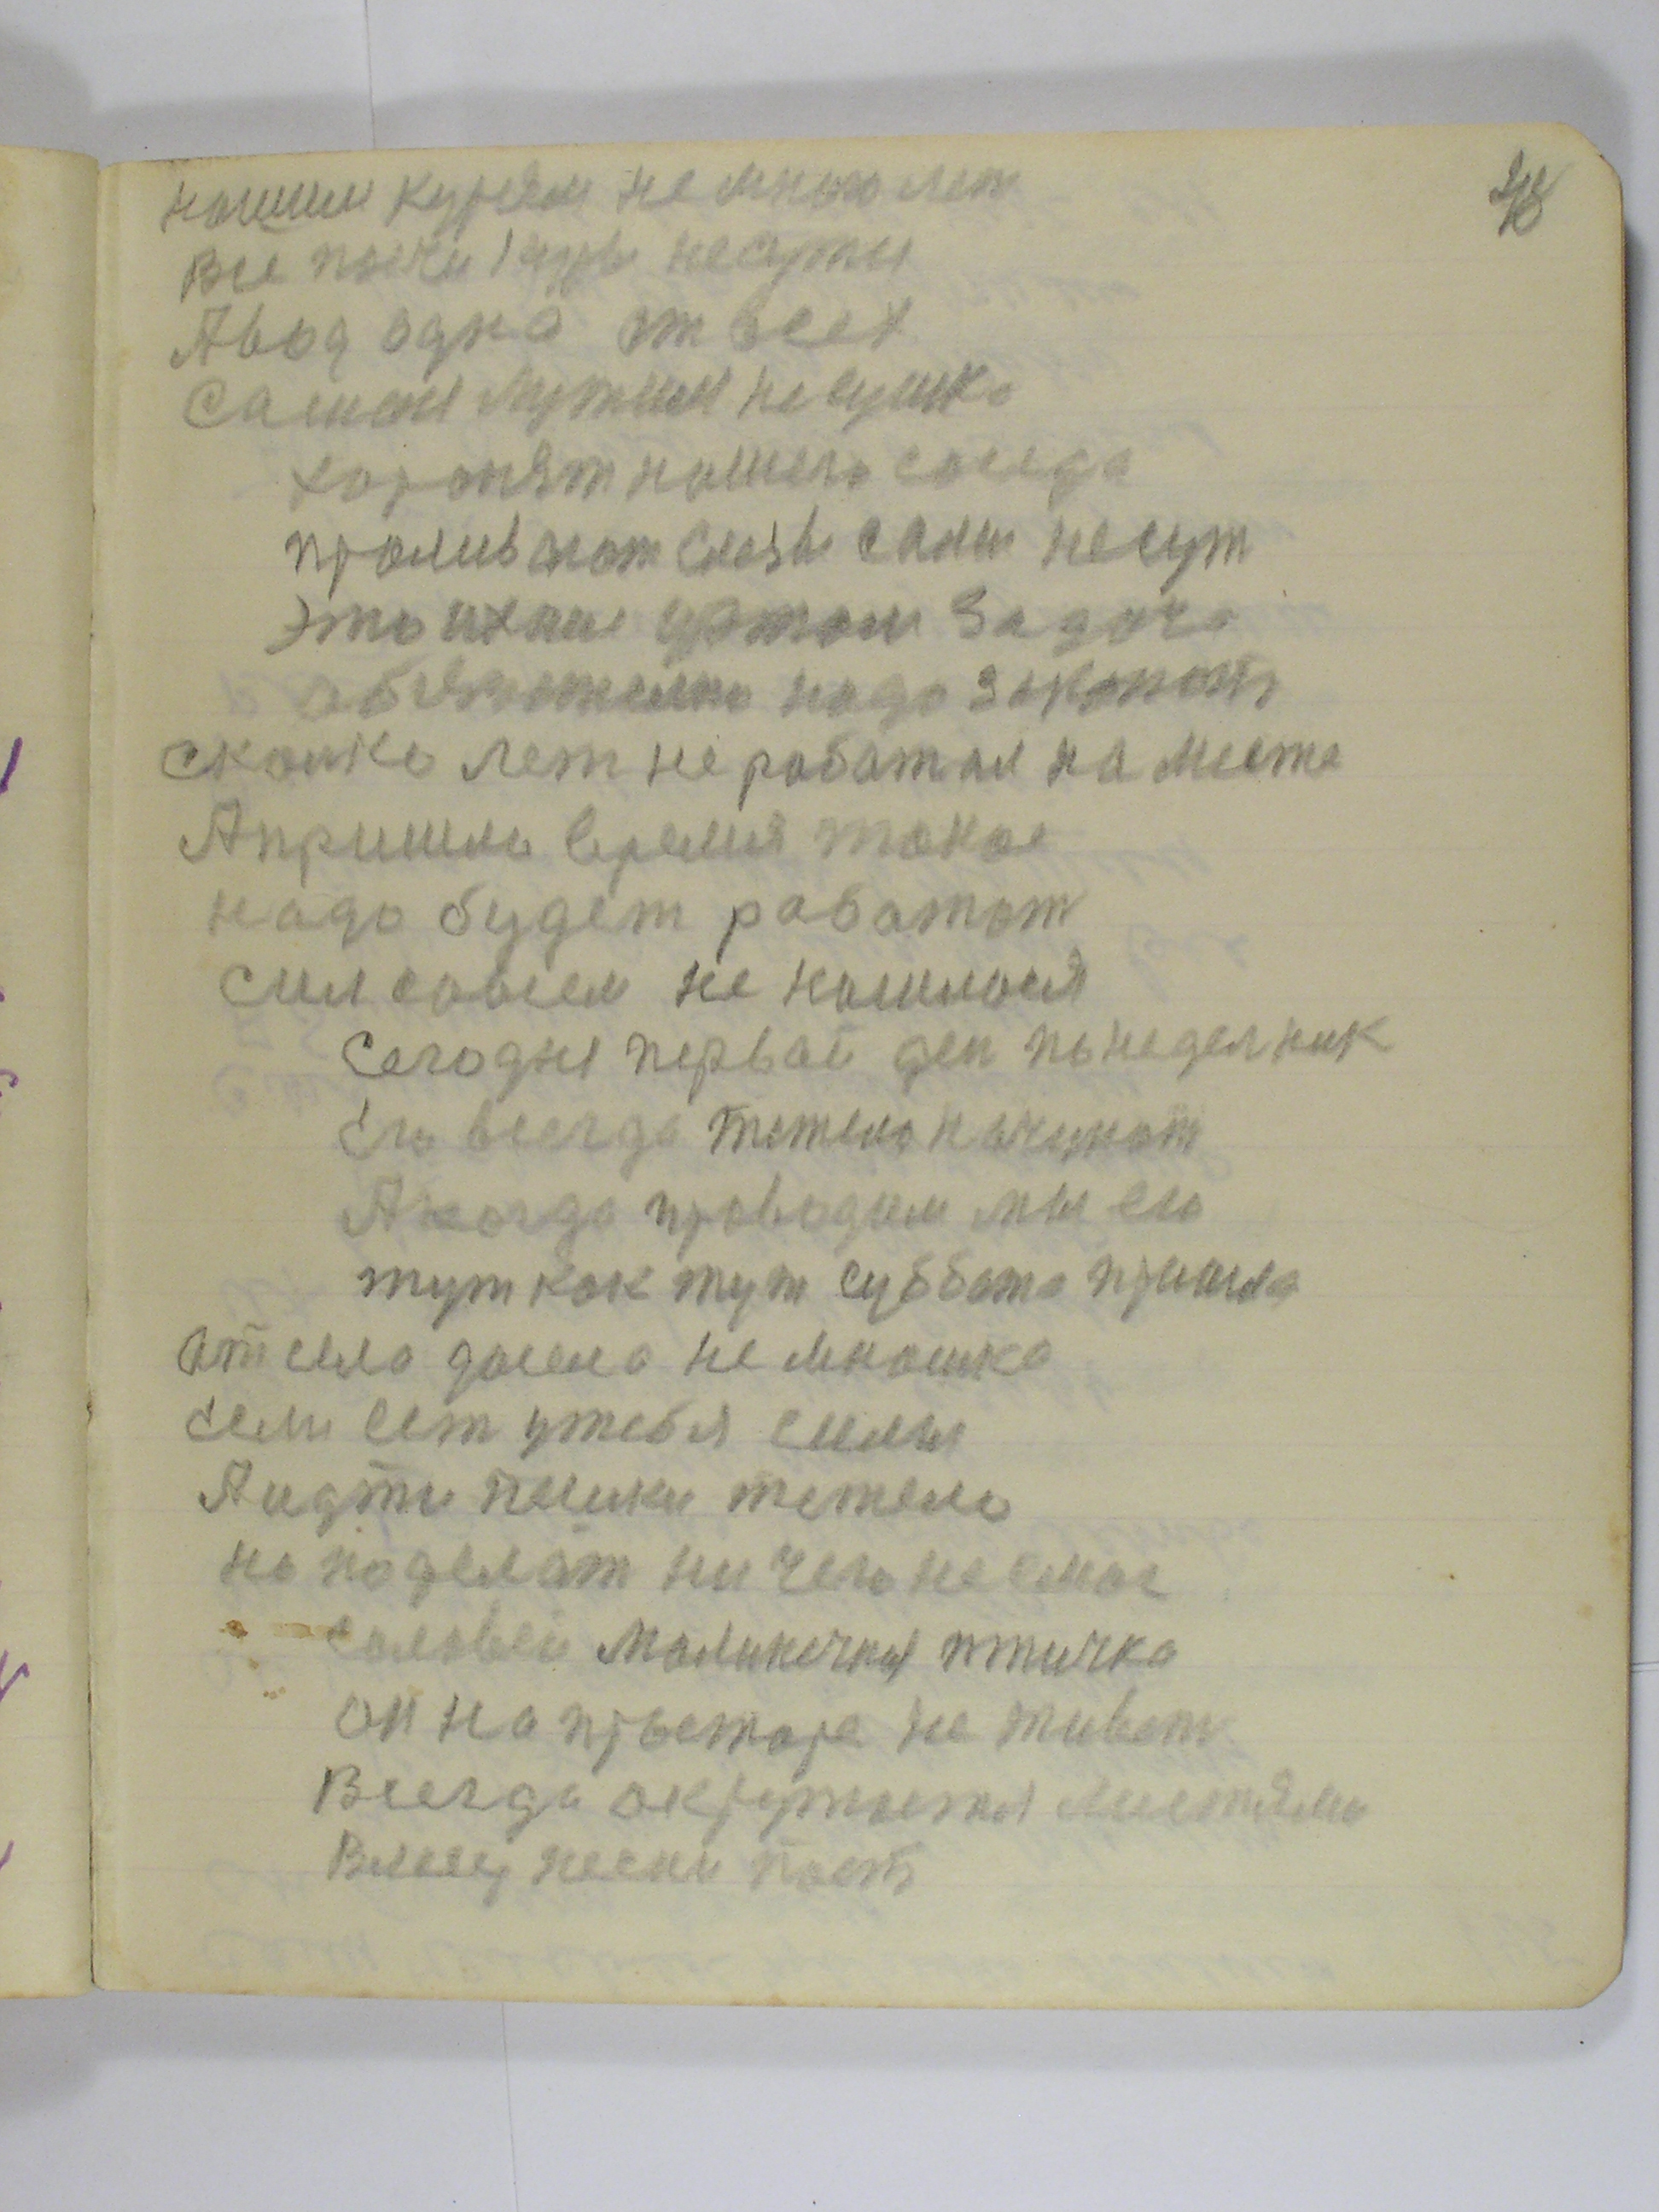 48
нашим курям не много лет
Все почти несутки
Авод одна от всех
Самои лутшеи несушка
хоронят нашего соседа
проливают слезы сами несут
это ихние задача
обязателно надо закопать
сколко лет не работал на месте
Апришло время такое
надо будет работат
сил совсем не нашлося
Сегодня первай ден понеделник
Его всегда тежело начинат
Акогда проводим мы его
тут как тут суббота пришла
от села досела не многшка
если ест утебя силы
Аидти пешки тежело
но поделат ни чего несмог
соловеи малинкчкая птичка
он на просторе не живет
Всегда окружается листями
Влесу песни поет